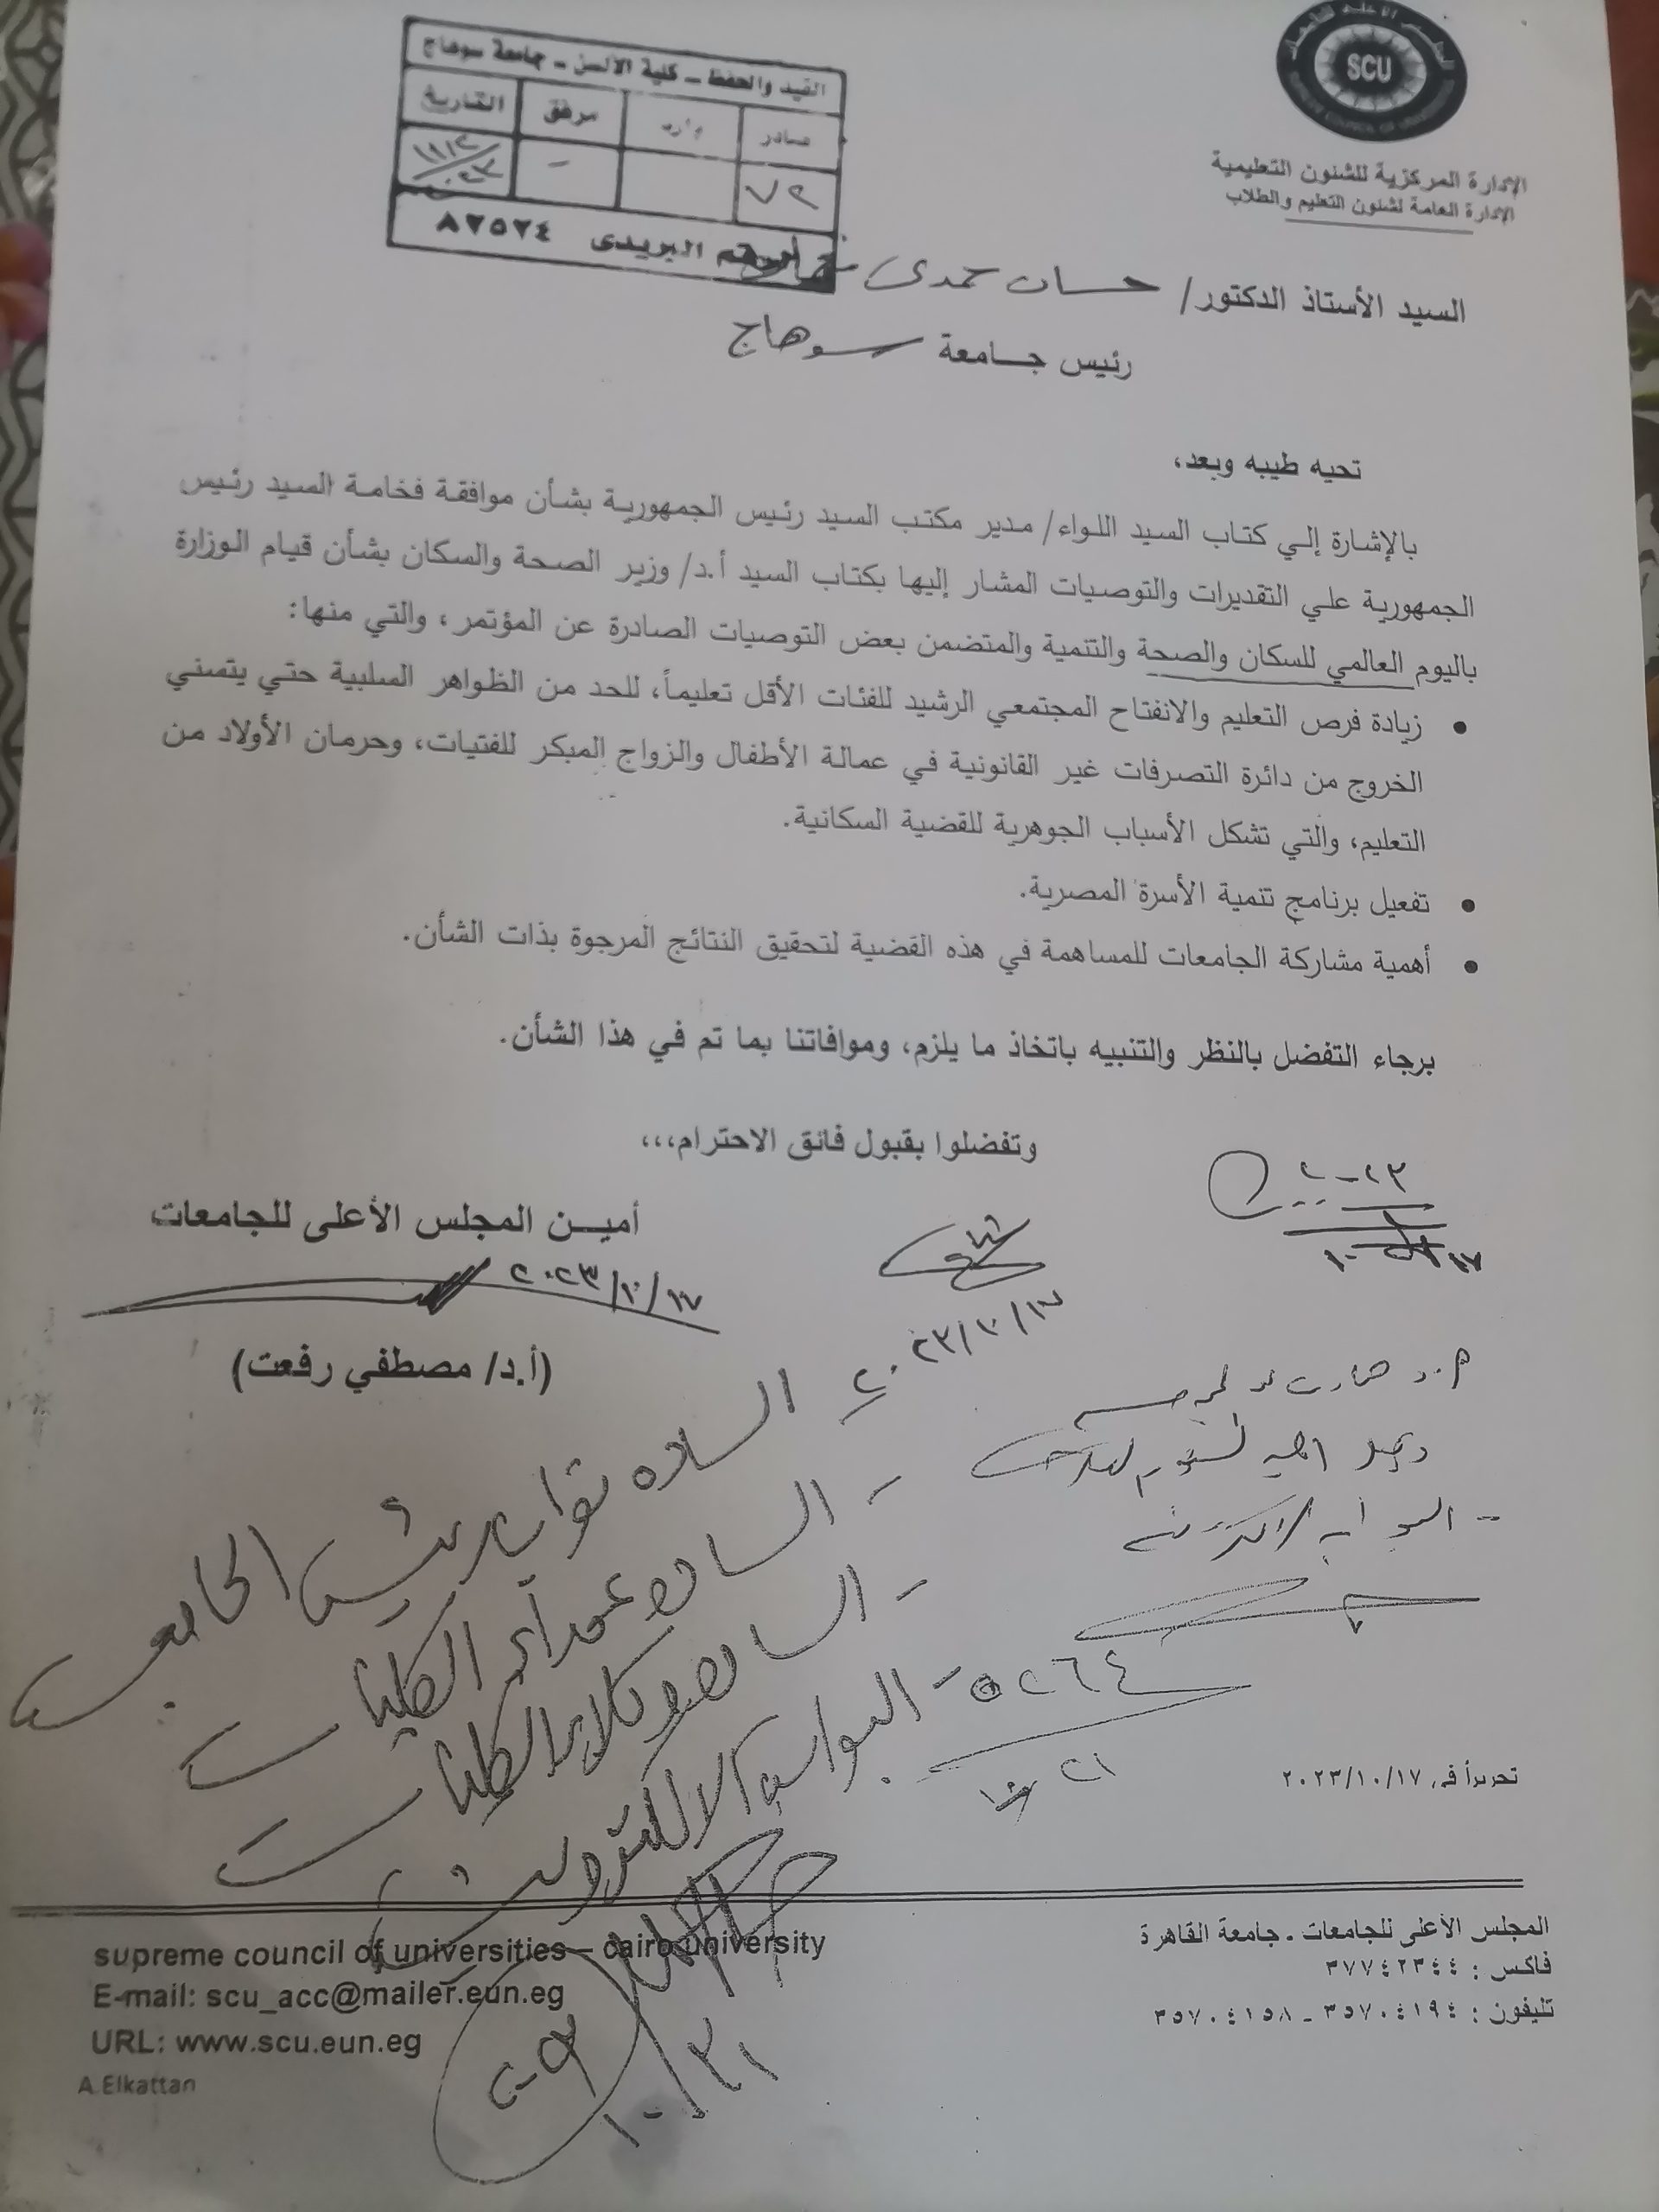 القيد والحفظ - كلية الألسن - جامعة سوهاج
صادر وارد مرفق التاريخ
٧٢ -
الرقم البريدى ٨٢٥٢٤
SCU
الإدارة المركزية للشئون التعليمية
الإدارة العامة لشئون التعليم والطلاب
السيد الأستاذ الدكتور/ حسان حمدى
رئيس جـامعة سوهاج
تحيه طيبه وبعد،
بالإشارة إلي كتاب السيد اللواء/ مدير مكتب السيد رئيس الجمهورية بشأن موافقة فخامة السيد رئيس
الجمهورية علي التقديرات والتوصيات المشار إليها بكتاب السيد أ.د/ وزير الصحة والسكان بشأن قيام الوزارة
باليوم العالمي للسكان والصحة والتنمية والمتضمن بعض التوصيات الصادرة عن المؤتمر، والتي منها:
• زيادة فرص التعليم والانفتاح المجتمعي الرشيد للفئات الأقل تعليماً، للحد من الظواهر السلبية حتي يتسني
الخروج من دائرة التصرفات غير القانونية في عمالة الأطفال والزواج المبكر للفتيات، وحرمان الأولاد من
التعليم، والتي تشكل الأسباب الجوهرية للقضية السكانية.
• تفعيل برنامج تنمية الأسرة المصرية.
• أهمية مشاركة الجامعات للمساهمة في هذه القضية لتحقيق النتائج المرجوة بذات الشأن.
برجاء التفضل بالنظر والتنبيه باتخاذ ما يلزم، وموافاتنا بما تم في هذا الشأن.
وتفضلوا بقبول فائق الاحترام،،،
أميـــن المجلس الأعلى للجامعات
٢٠٢٣/١٠/١٧
(أ.د/ مصطفي رفعت)
٢٠٢٣/١٠/١٧
السادة نواب رئيس الجامعة
- السادة عمداء الكليات
- السادة وكلاء الكليات
- البوابة الالكترونية
٥٢٦٤
١٠/٣١
تحريراً في ٢٠٢٣/١٠/١٧
المجلس الأعلى للجامعات - جامعة القاهرة
فاكس : ٣٧٧٤٢٣٤٤
تليفون : ٣٥٧٠٤١٩٤ - ٣٥٧٠٤١٥٨
supreme council of universities – cairo university
E-mail: scu_acc@mailer.eun.eg
URL: www.scu.eun.eg
A.Elkattan